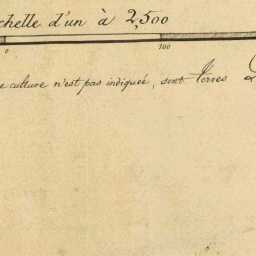 chelle d'un à 2,500
0 100
e culture n'est pas indiquée, sont Terres